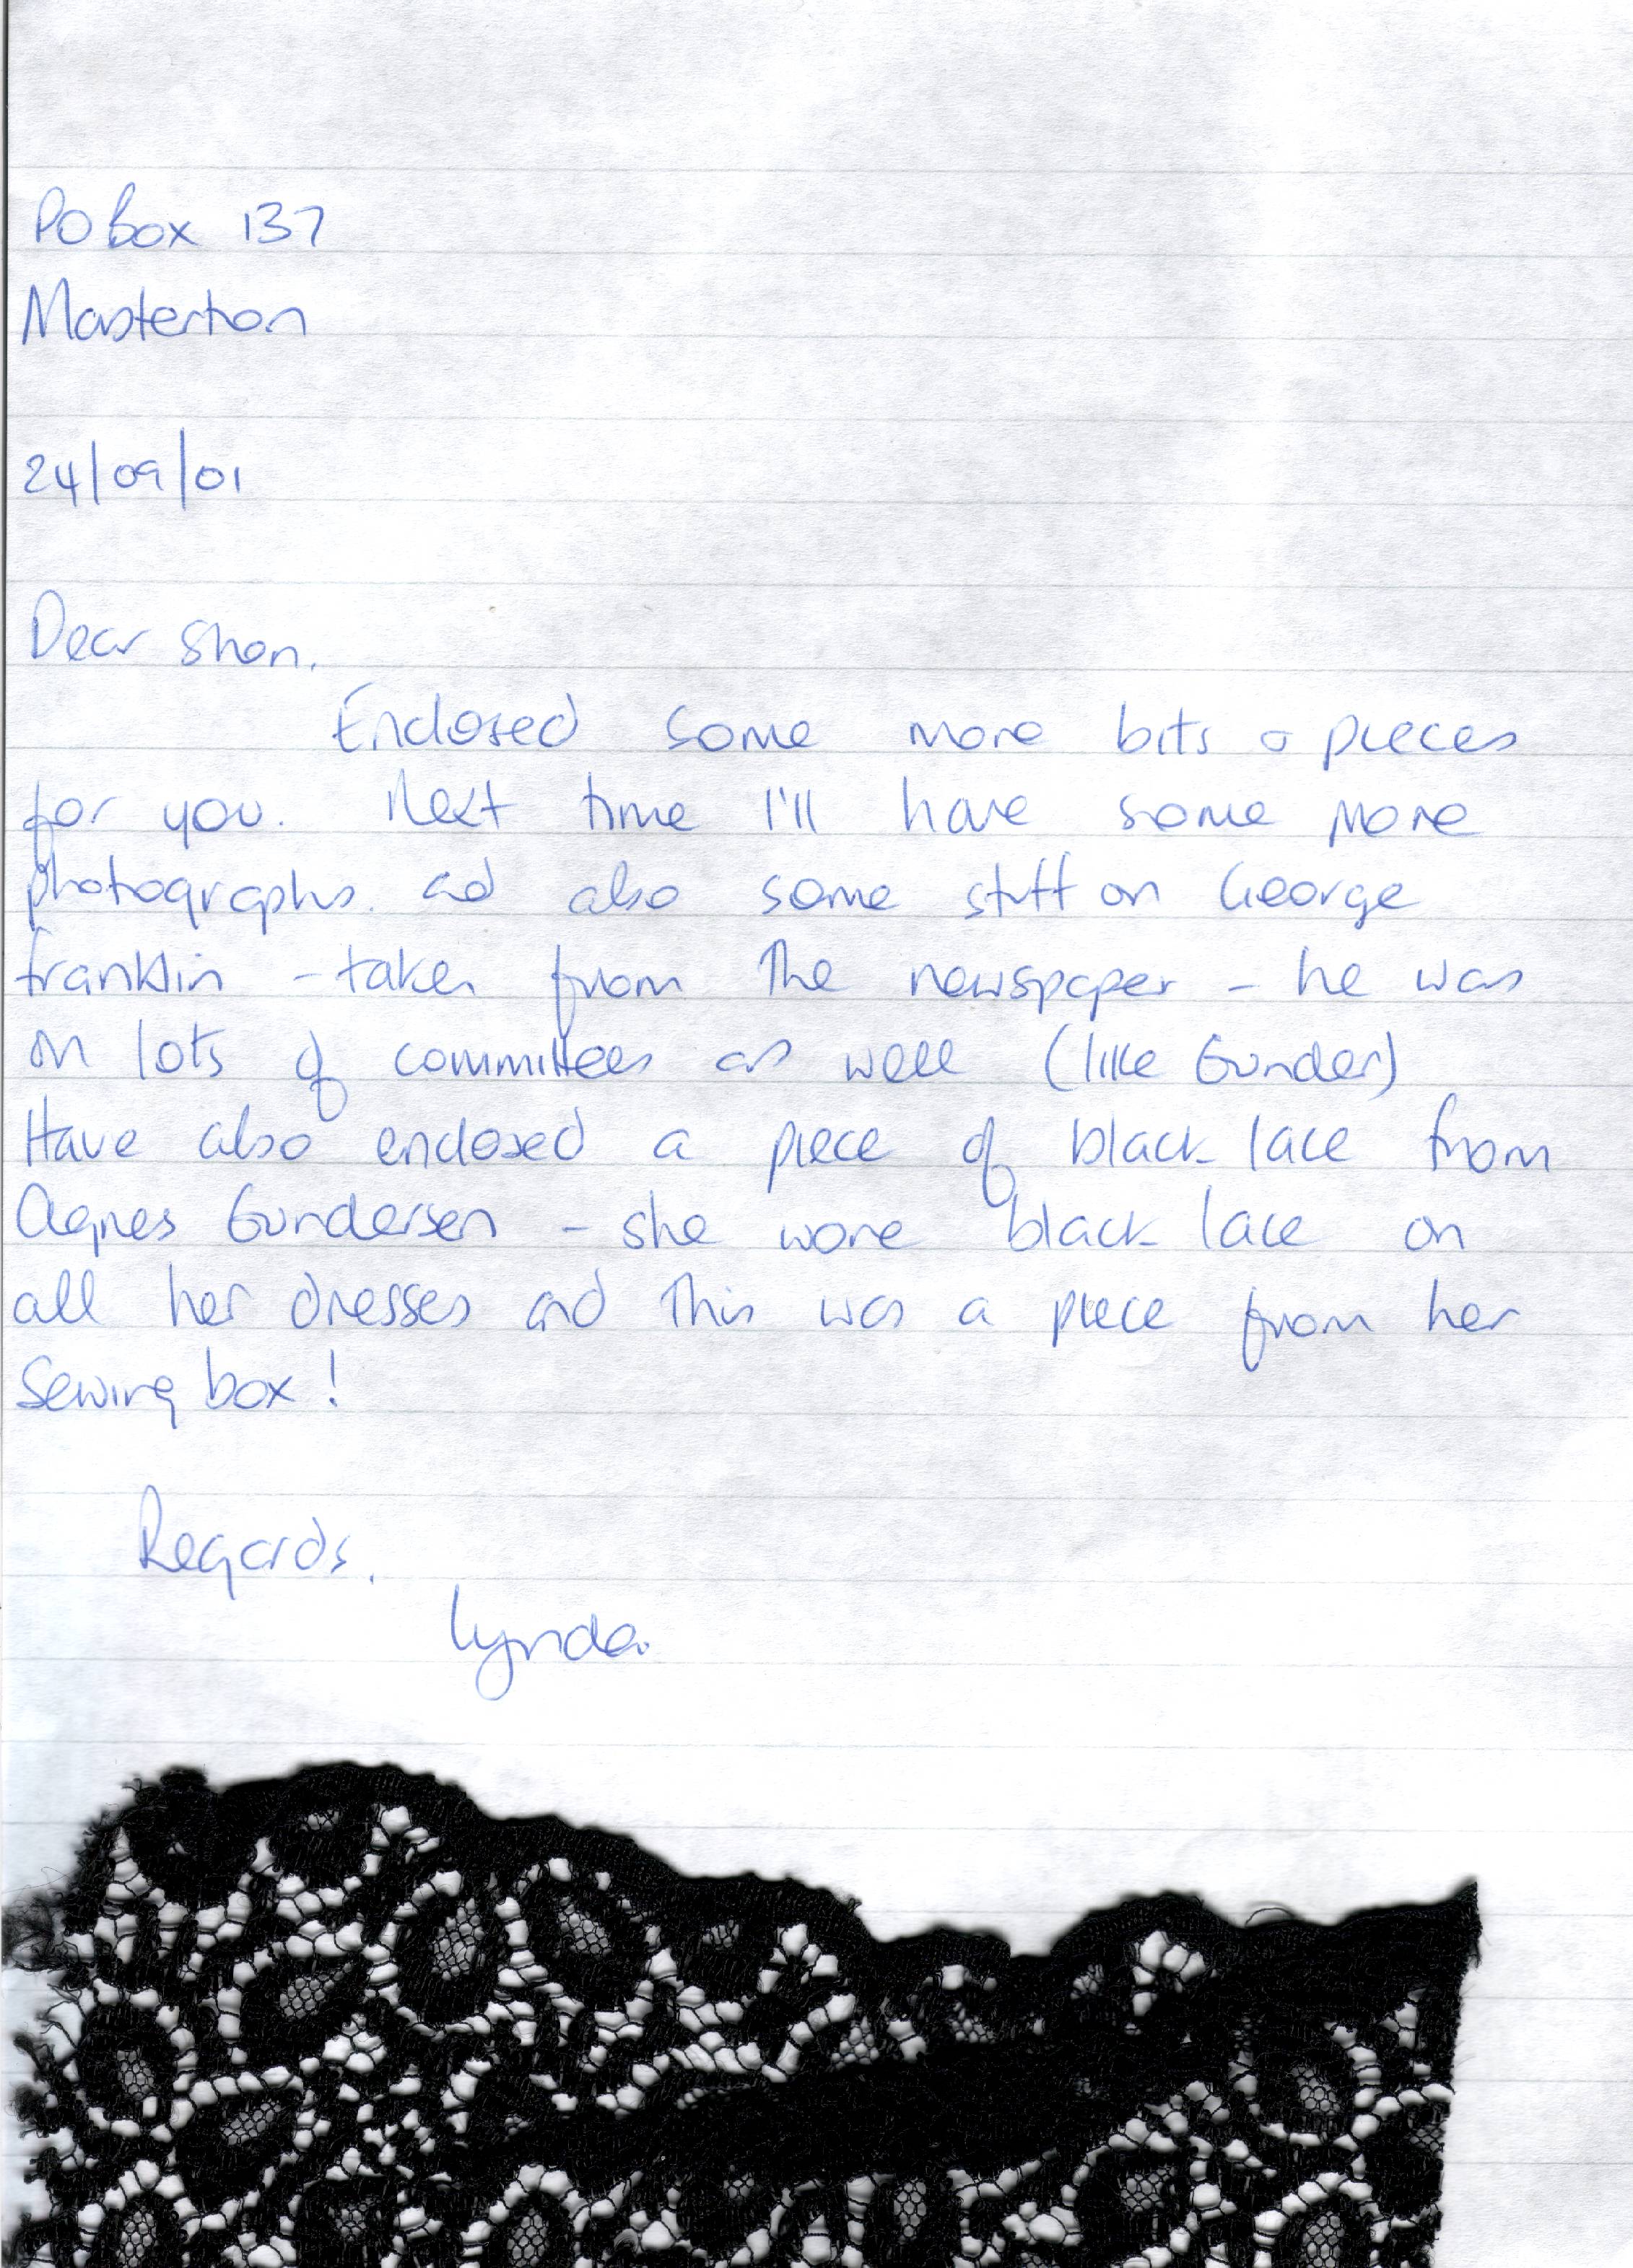 PO Box 137
Masterton
24/09/01
Dear Shon.
Enclosed some more bits & pieces
for you. Next time I'll have some more
photographs. ad also some stuff on George
Franklin - taken from the newspaper - he was
on lots of committees as well (like Gunder)
Have also enclosed a piece of black lace from
Agnes Gundersen - she wore black lace on
all her dresses and this was a piece from her
Sewing box!
Regards.
Lynda.